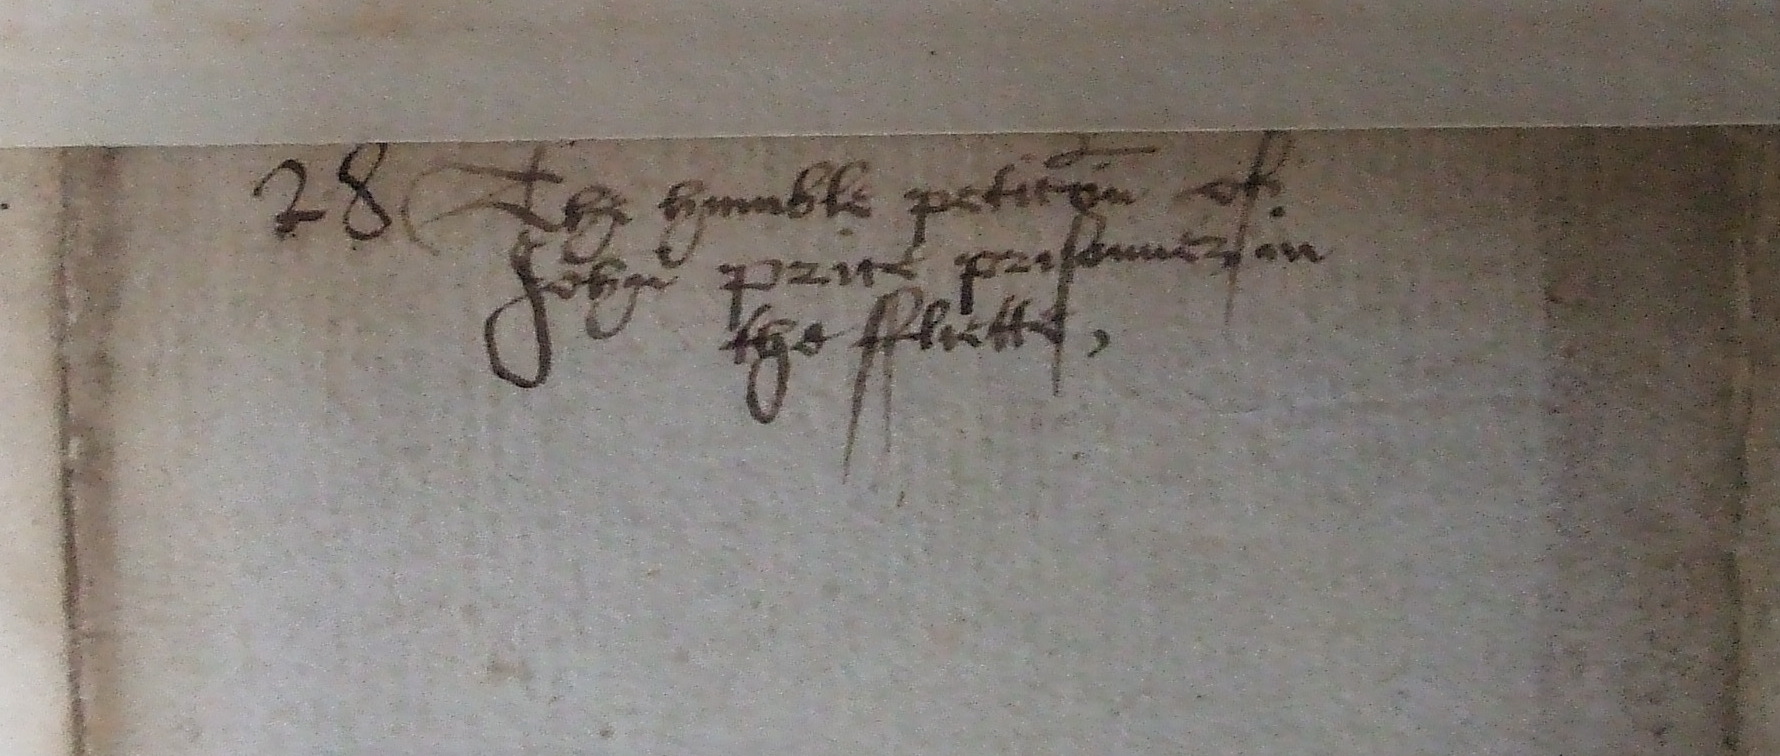 28 The humble peticōn of
John price prisonner in
the fflette,